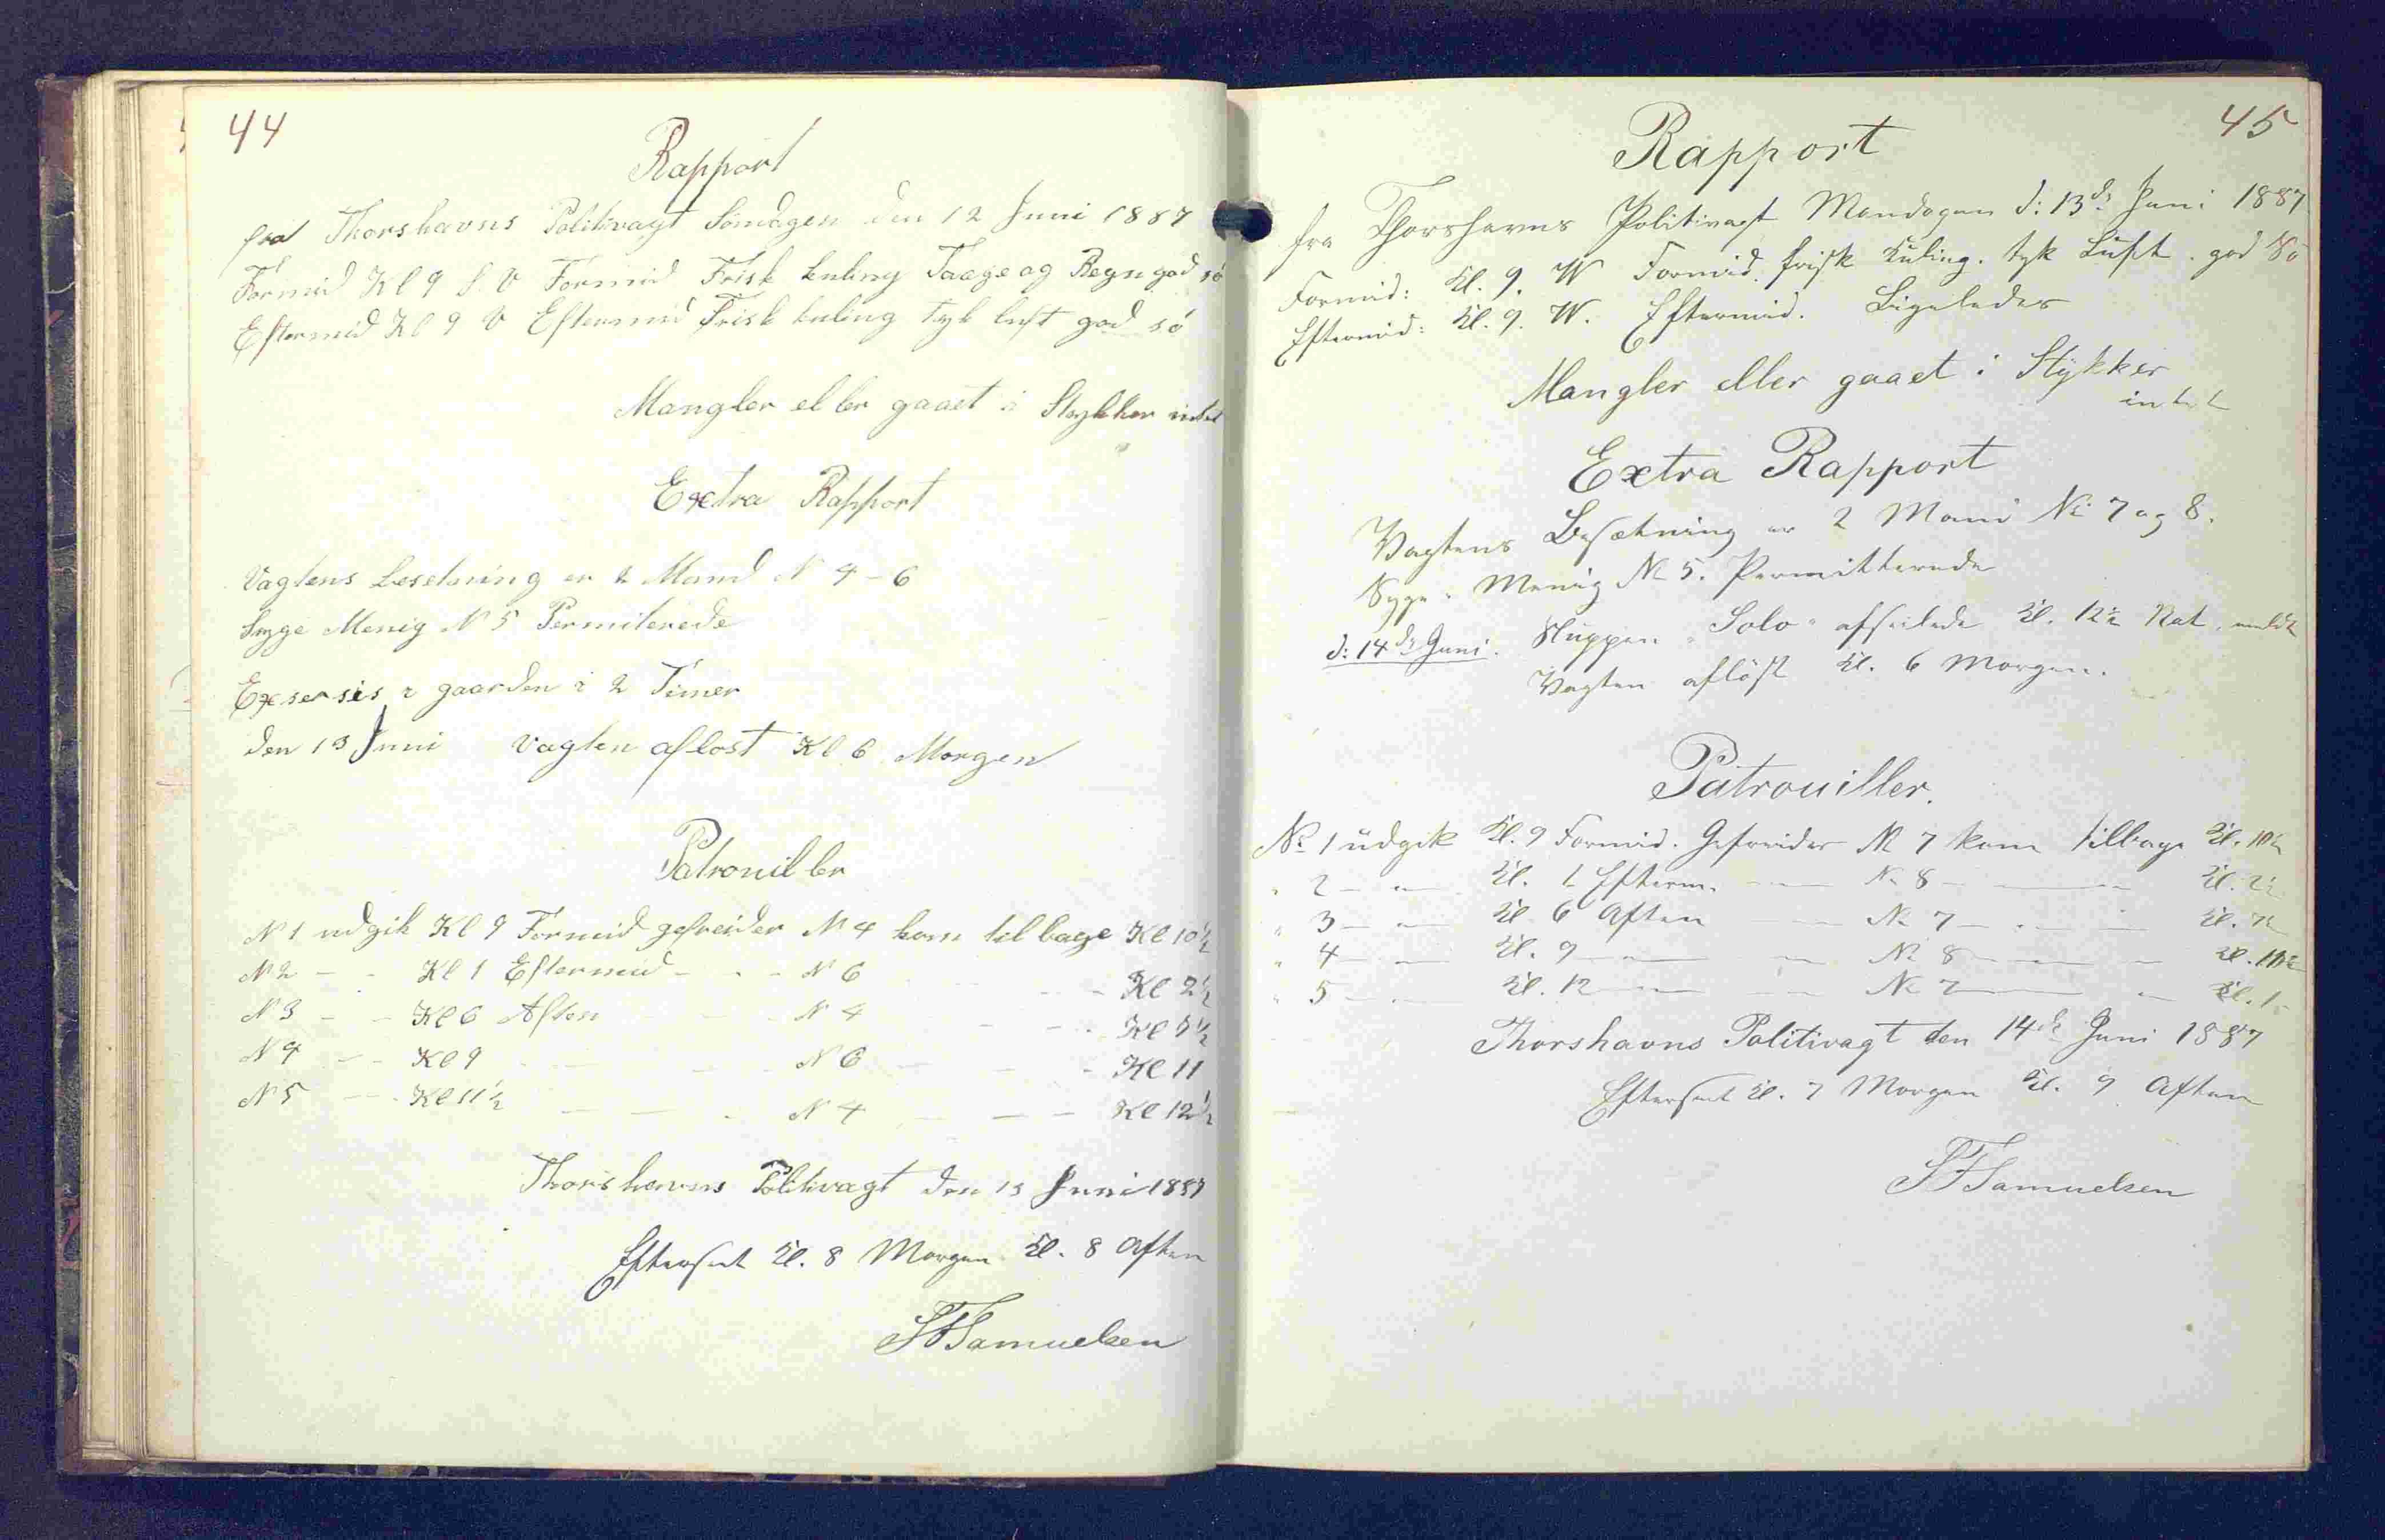 44
Rapport
fra Thorshavns Politivagt Söndagen den 12 Juni 1887
Formid Kl 9 S. V Formid Frisk kuling Taage og Regn god sö
Eftermid Kl 9 V Eftermid Frisk kuling tyk luft god sö
Mangler eller gaaet i Stykker intet
Extra Rapport
Vagtens Besetning er 2 Mand N 4 - 6
Syge Menig N 5 Permiterede
Exsersis i gaarden i 2 Timer
den 13 Juni vagten aflost Kl 6 Morgen
Patrouiller
N 1 udgik Kl 9 Formid gefreider N 4 kom tilbage Kl 10½
N 2 - - Kl 1 Eftermid - - - N 6 - - - Kl 2½
N 3 - - Kl 6 Aften - - N 4 - - - Kl 7½
N 4 - - Kl 9 - - - N 6 - - - Kl 11
N 5 - - Kl 11½ - - - N 4 - - - Kl 12½
Thorshavns Politivagt den 13 Juni 1887
Efterseet Kl. 8 Morgen Kl. 8 Aften
SFSamuelsen
45
Rapport
fra Thorshavns Politivagt Mandagen d: 13de Juni 1887
Formid: Kl. 9. W Formid. frisk Kuling. tyk Luft. god Sö
Eftermid: Kl. 9. W. Eftermid. Ligeledes
Mangler eller gaaet i Stykker
intet
Extra Rapport
Vagtens Besætning er 2 Mand No 7 og 8.
Syge. Menig No 5. Permitterede
d: 14de Juni. Sluppen "Solo" afseilede Kl. 12½ Nat.
Vagten aflöst Kl. 6 Morgen.
Patrouiller.
No 1 udgik Kl. 9 Formid. Gefreider No 7 kom tilbage Kl. 10½
" 2 - - Kl. 1 Efterm. - - No 8 - - - Kl. 2½
" 3 - - Kl. 6 Aften - - No 7 - - - Kl. 7½
" 4 - - Kl. 9 - - - No 8 - - - Kl. 10½
" 5 - - Kl. 12 - - - No 7 - - - Kl. 1 -
Thorshavns Politivagt den 14de Juni 1887
Efterseet Kl. 7 Morgen Kl. 9 Aften
SFSamuelsen